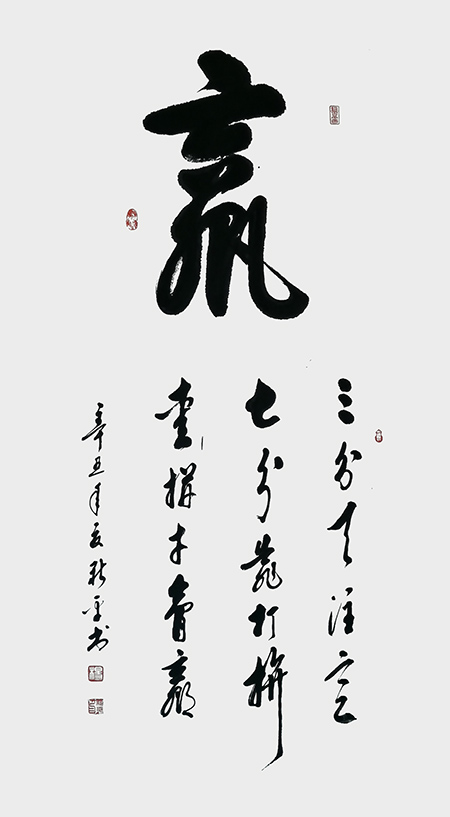 赢
三分天注定
七分靠打拼
爱拼才會赢
辛丑年夏新平书